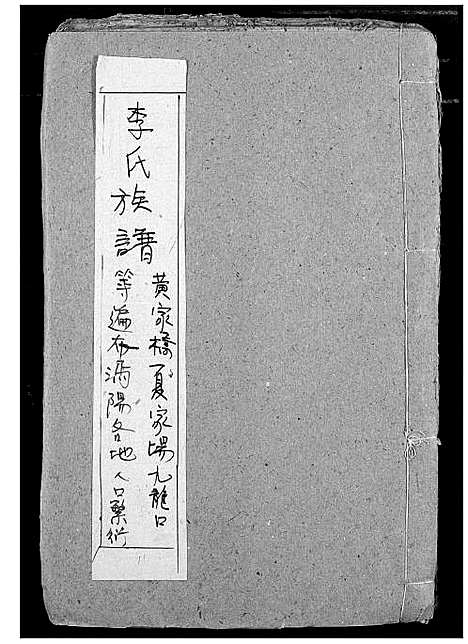 李氏族譜
黄家橋夏家場九龍口
等遍布沔陽各地人口繁衍